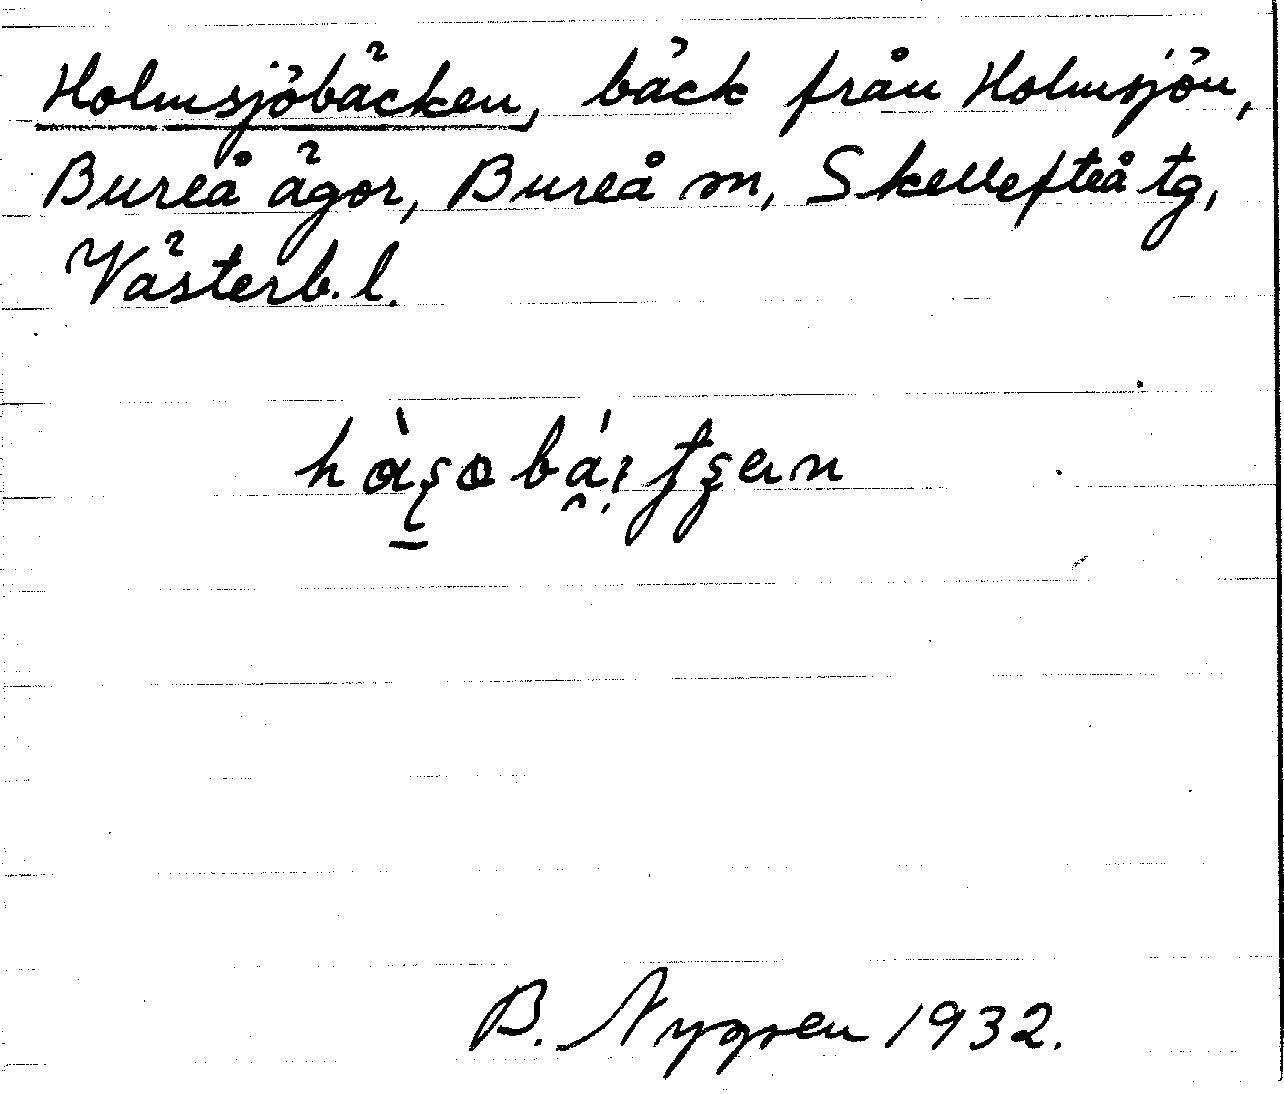 Holmsjöbäcken, bäck från Holmsjön,
Bureå ägor, Bureå m, Skellefteå tg,
Västerb. l.
B. Nygren 1932.